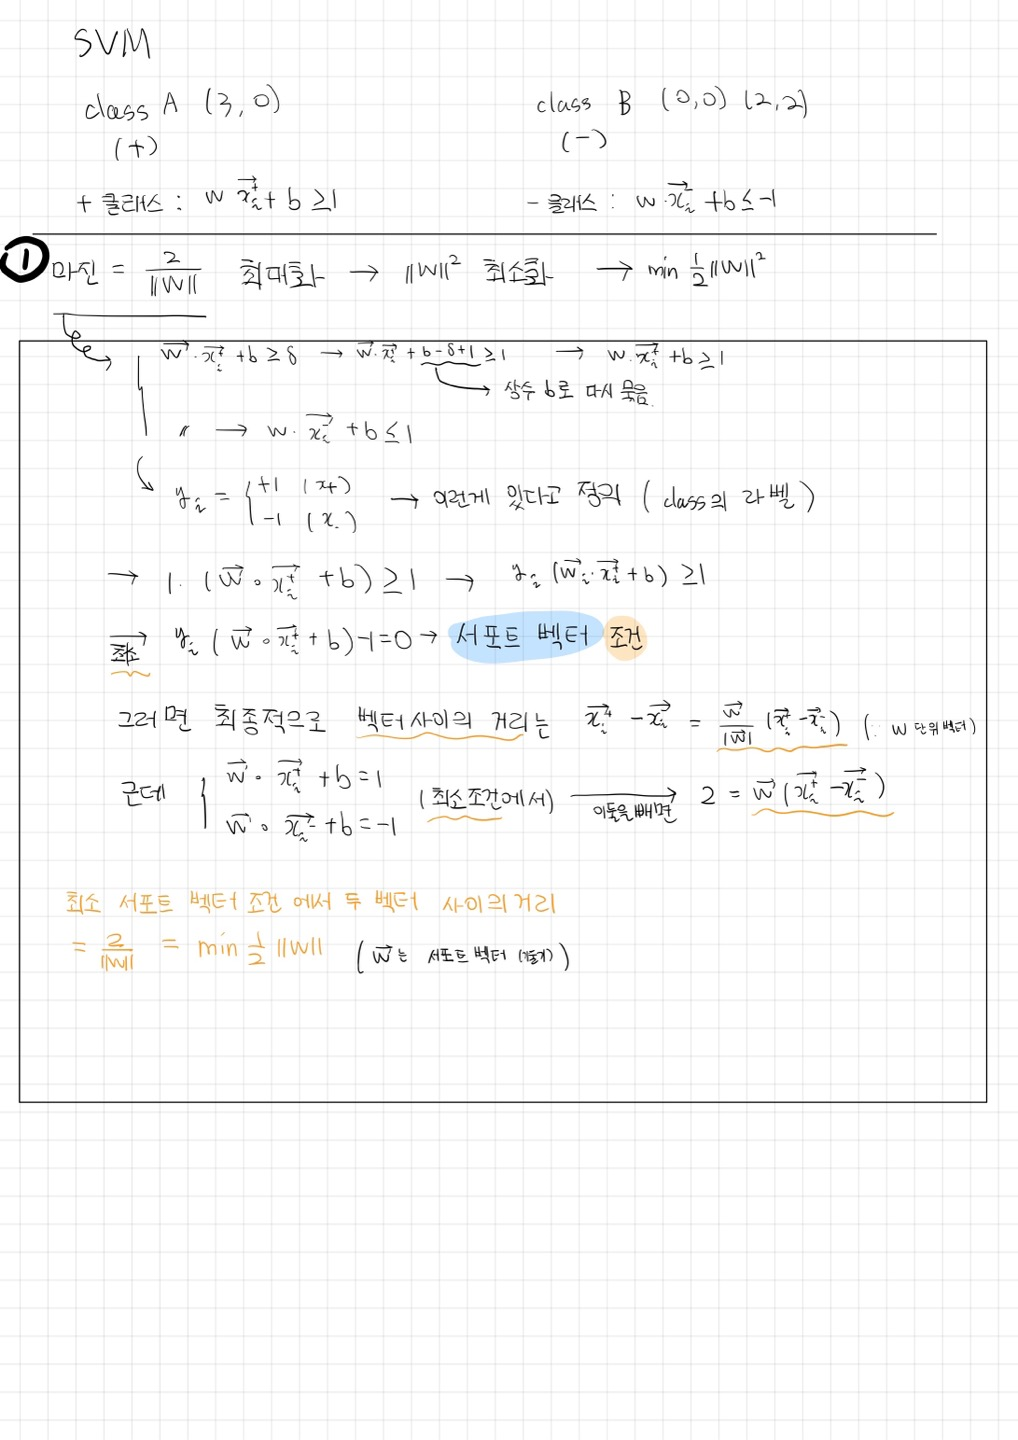 SVM
class A (3,0) class B (0,0) (2,2)
(+) (-)
+ 클래스 : w x⃗ᵢ⁺ + b ≥ 1 - 클래스 : w·x⃗ᵢ⁻ + b ≤ -1
① 마진 = 2/||W|| 최대화 → ||W||² 최소화 → min 1/2 ||W||²
w⃗·x⃗ᵢ⁺ + b ≥ δ → w⃗·x⃗ᵢ⁺ + b-δ+1 ≥ 1 → w·x⃗ᵢ⁺ + b ≥ 1
→ 상수 b로 다시 묶음.
〃 → w·x⃗ᵢ⁻ + b ≤ 1
yᵢ = { +1 (x+) -1 (x-) → 이런게 있다고 정의 ( class의 라벨 )
→ 1·(w⃗∘x⃗ᵢ⁺ + b) ≥ 1 → yᵢ (w⃗ᵢ·x⃗ᵢ⁺ + b) ≥ 1
→ 최소 yᵢ ( w⃗∘x⃗ᵢ⁺ + b) -1 = 0 → 서포트 벡터 조건
그러면 최종적으로 벡터사이의 거리는 x⃗ᵢ⁺ - x⃗ᵢ = w⃗/|w⃗| (x⃗ᵢ⁺ - x⃗ᵢ⁻) (∵ w 단위벡터)
근데 { w⃗∘x⃗ᵢ⁺ + b = 1
w⃗∘x⃗ᵢ⁻ + b = -1 (최소조건에서) → 이둘을빼면 2 = w⃗ (x⃗ᵢ⁺ - x⃗ᵢ⁻)
최소 서포트 벡터 조건에서 두 벡터 사이의거리
= 2/||W|| = min 1/2 ||W|| ( w⃗는 서포트벡터 (기울기) )